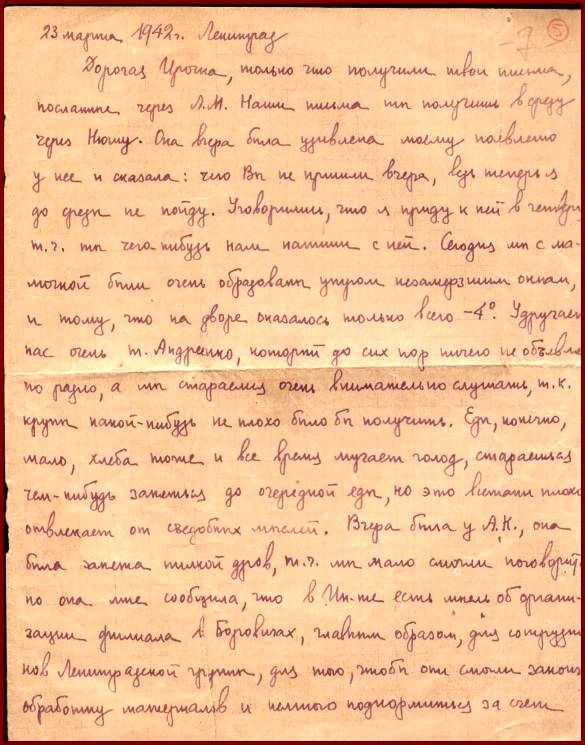 23 марта 1942г. Ленинград
Дорогая Ирочка, только что получили твои письма,
посланные через Л.М. Наши письма ты получишь в среду
через Нюшу. Она вчера была удивлена моему появлению
у нее и сказала: чего Вы не пришли вчера, ведь теперь я
до среды не пойду. Уговорились, что я приду к ней в четверг
т.ч. ты чего нибудь нам напиши с ней. Сегодня мы с ма-
мочкой были очень обрадованы утром незамерзшим окнам,
и тому, что на дворе оказалось только всего -4°. Удручает
нас очень т. Андреенко, который до сих пор ничего не объявле
по радио, а мы стараемся очень внимательно слушать, т.к.
крупы какой-нибудь не плохо было бы получить. Еды, конечно,
мало, хлеба тоже и все время мучает голод, стараешься
чем-нибудь заняться до очередной еды, но это всетаки плохо
отвлекает от съедобных мыслей. Вчера была у А.К., она
была занята пилкой дров, т.ч. мы мало смогли поговорит
но она мне сообщила, что в Ин-те есть мысль об органи-
зации филиала в Боровичах, главным образом, для сотрудни
ков Ленинградской группы, для того, чтобы они смогли законч
обработку материалов и немного подкормиться за счет